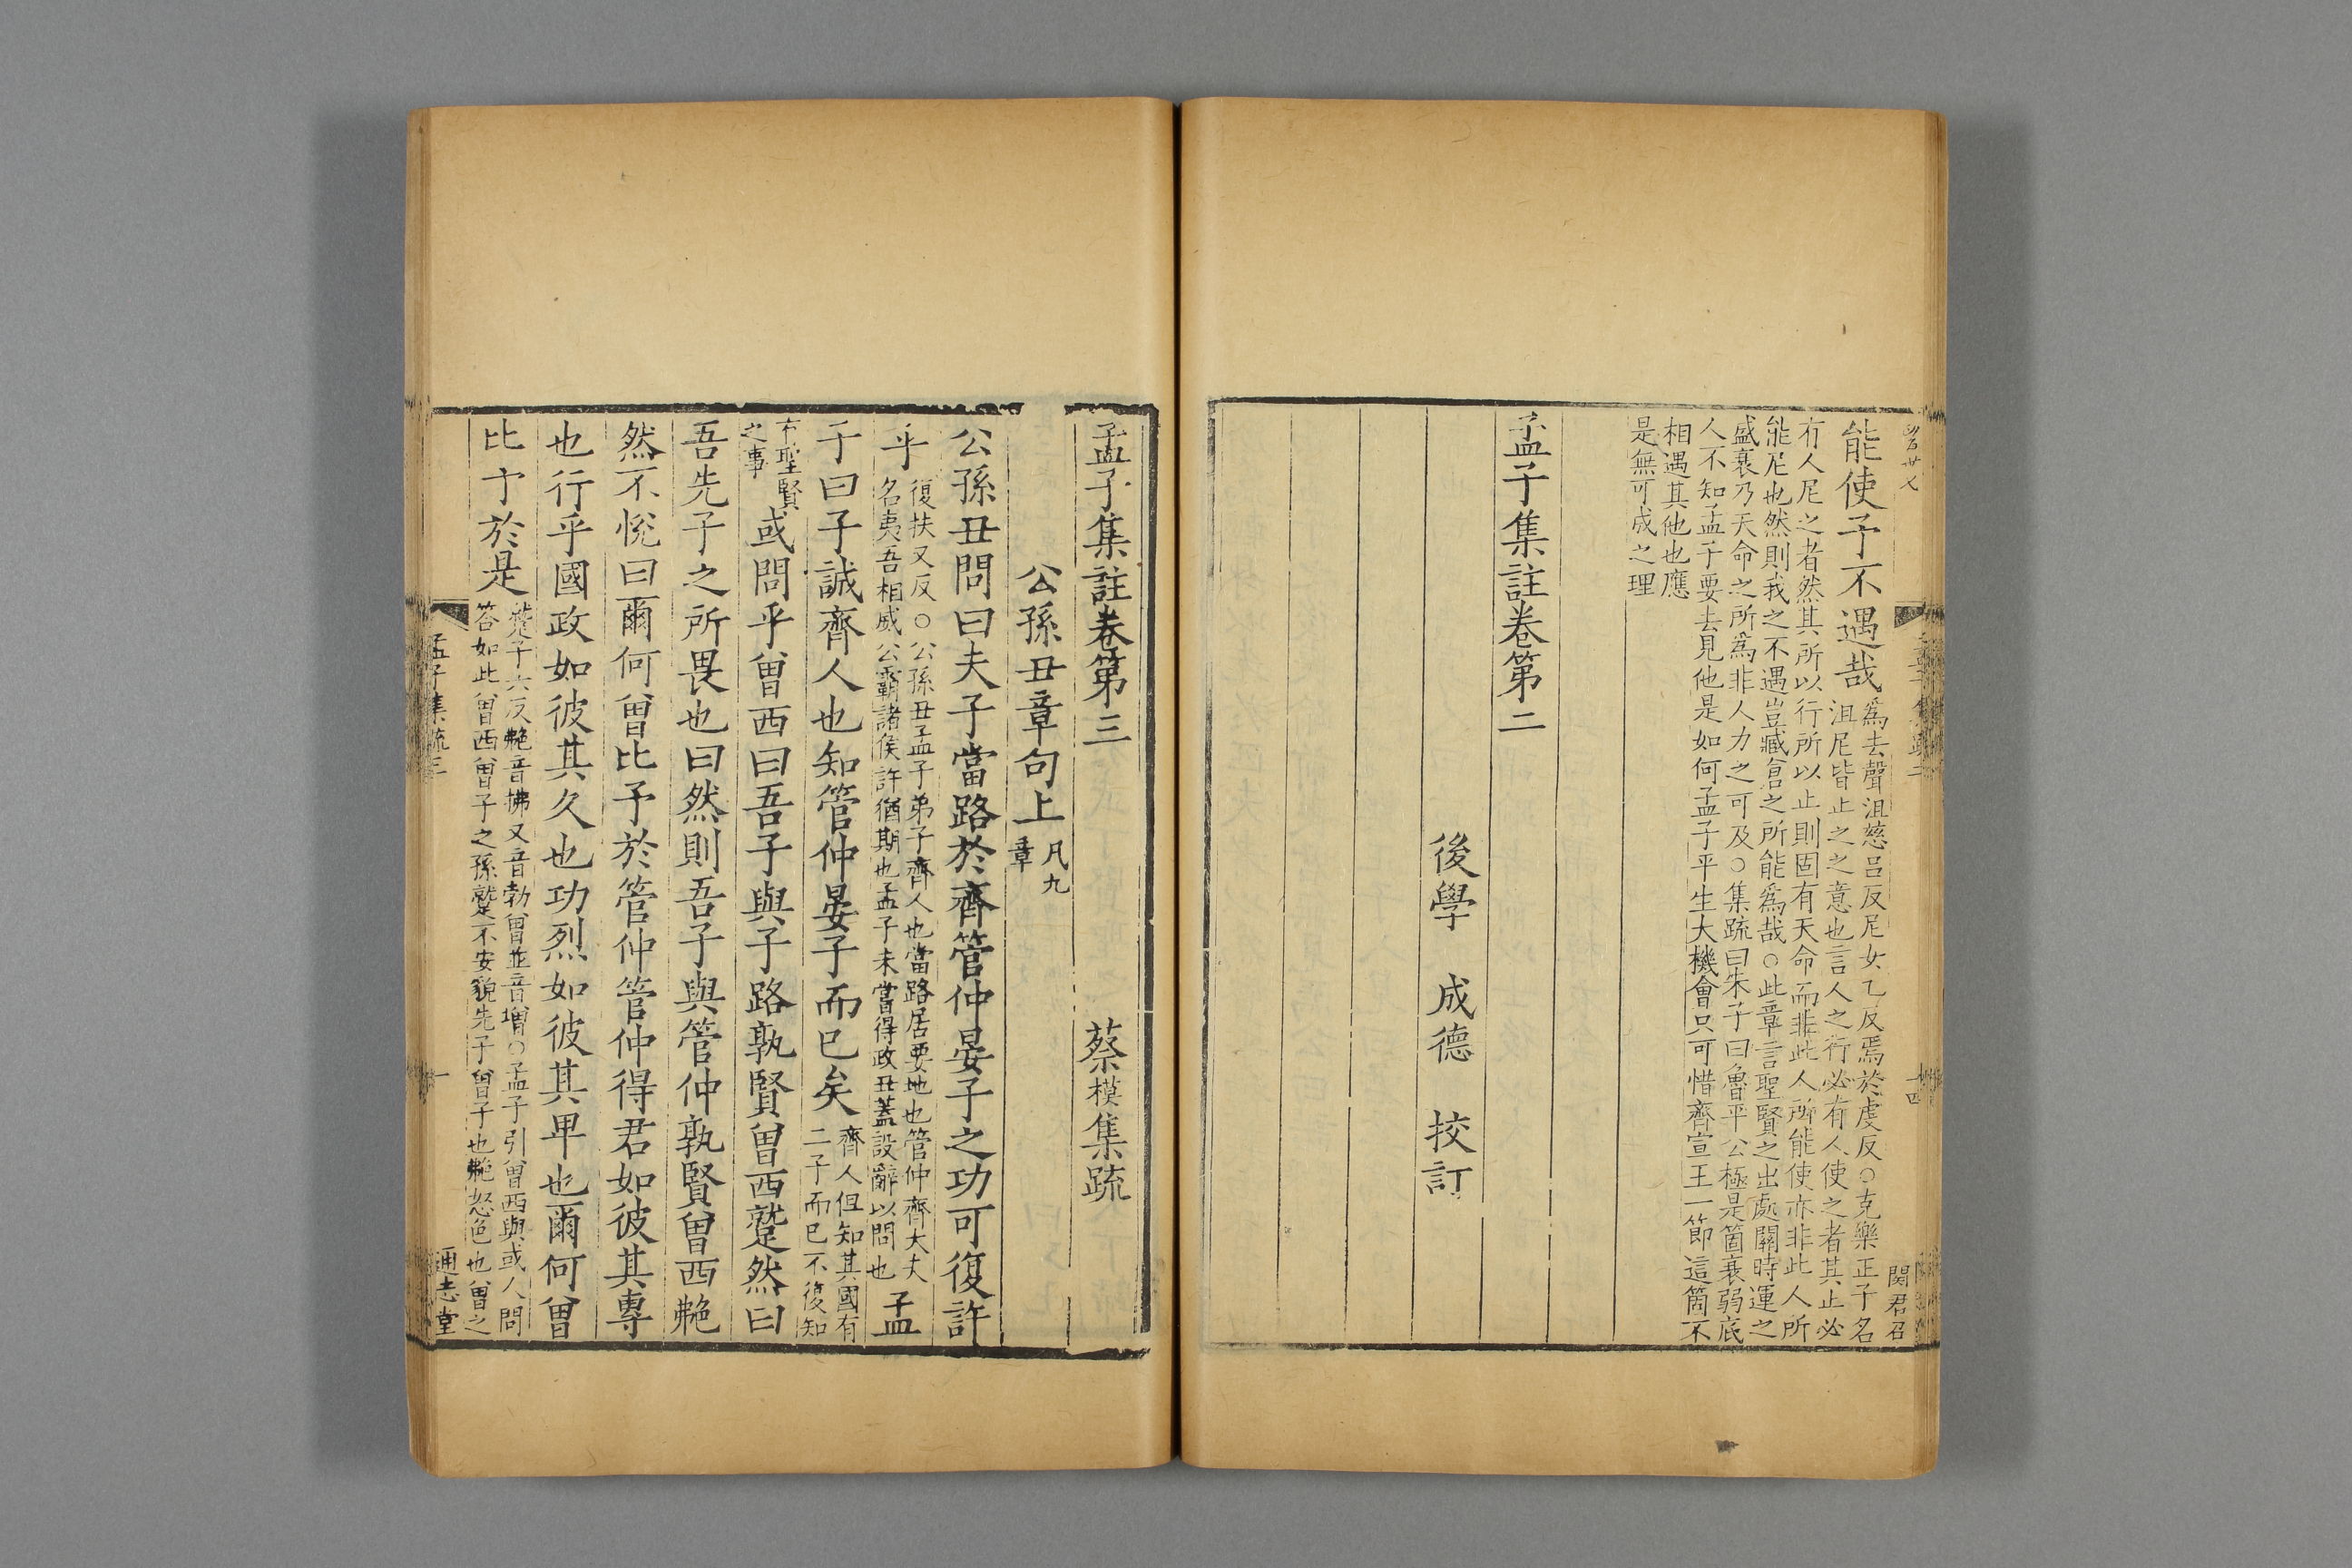 能使予不遇哉
爲去聲沮慈呂反尼女乙反焉於虔反○克樂正子名
沮尼皆止之之意也言人之行必有人使之者其止必
有人尼之者然其所以行所以止則固有天命而非此人所能使亦非此人所
能尼也然則我之不遇豈臧倉之所能爲哉○此章言聖賢之出處關時運之
盛衰乃天命之所爲非人力之可及○集疏曰朱子曰魯平公極是箇衰弱底
人不知孟子要去見他是如何孟子平生大機會只可惜齊宣王一節這箇不
相遇其他也應
是無可成之理
孟子集註卷第二
後學　成德　挍訂
孟子集註卷第三
蔡模集疏
公孫丑章句上
凡九
章
公孫丑問曰夫子當路於齊管仲晏子之功可復許
乎
復扶又反○公孫丑孟子弟子齊人也當路居要地也管仲齊大夫
名夷吾相威公霸諸侯許猶期也孟子未嘗得政丑蓋設辭以問也
孟
子曰子誠齊人也知管仲晏子而已矣
齊人但知其國有
二子而已不復知
有聖賢
之事
或問乎曾西曰吾子與子路孰賢曾西蹵然曰
吾先子之所畏也曰然則吾子與管仲孰賢曾西艴
然不悅曰爾何曾比予於管仲管仲得君如彼其專
也行乎國政如彼其久也功烈如彼其卑也爾何曾
比予於是
蹵子六反艴音拂又音勃曾並音增○孟子引曾西與或人問
答如此曾西曾子之孫蹵不安貌先子曾子也艴怒色也曾之
孟子集疏三
一
通志堂